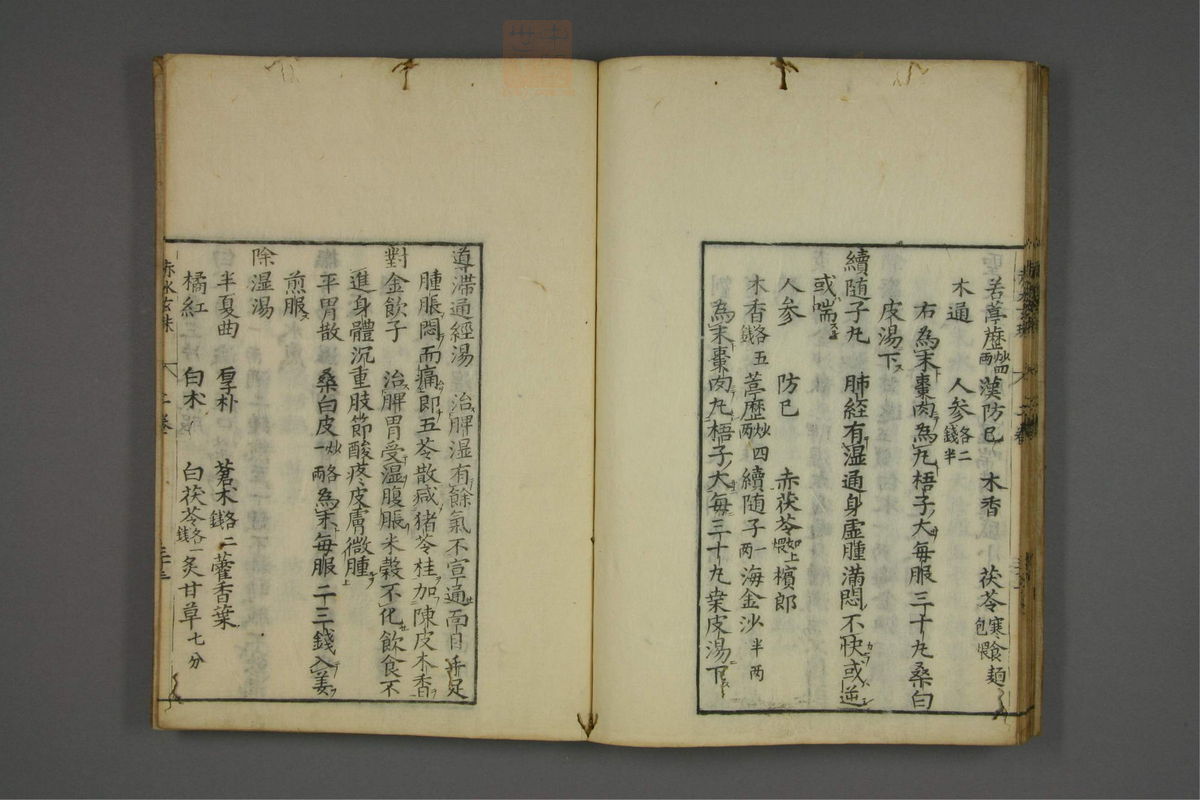 苦葶藶炒四兩漢防已 木香 茯苓寒食麺包煨
木通 人参各二錢半
右為末棗肉為丸梧子大毎服三十丸桑白
皮湯下
續随子丸 肺経有湿通身虚腫滿悶不快或逆
或喘
人参 防已 赤茯苓如上煨檳郎
木香各五錢葶藶炒四兩續随子一兩海金沙半两
為末棗肉丸梧子大毎三十丸桒皮湯下
導滞通經湯 治脾湿有餘氣不宣通面目手足
腫脹悶而痛即五苓散減猪苓桂加陳皮木香
對金飲子 治脾胃受湿腹脹米穀不化飲食不
進身體沉重肢節酸疼皮膚微腫
平胃散 桑白皮炒一兩各為末毎服二三錢入姜
煎服
除湿湯
半夏曲 厚朴 蒼术各二錢藿香葉
橘紅 白术 白茯苓各一錢炙甘草七分
赤水玄珠 二卷